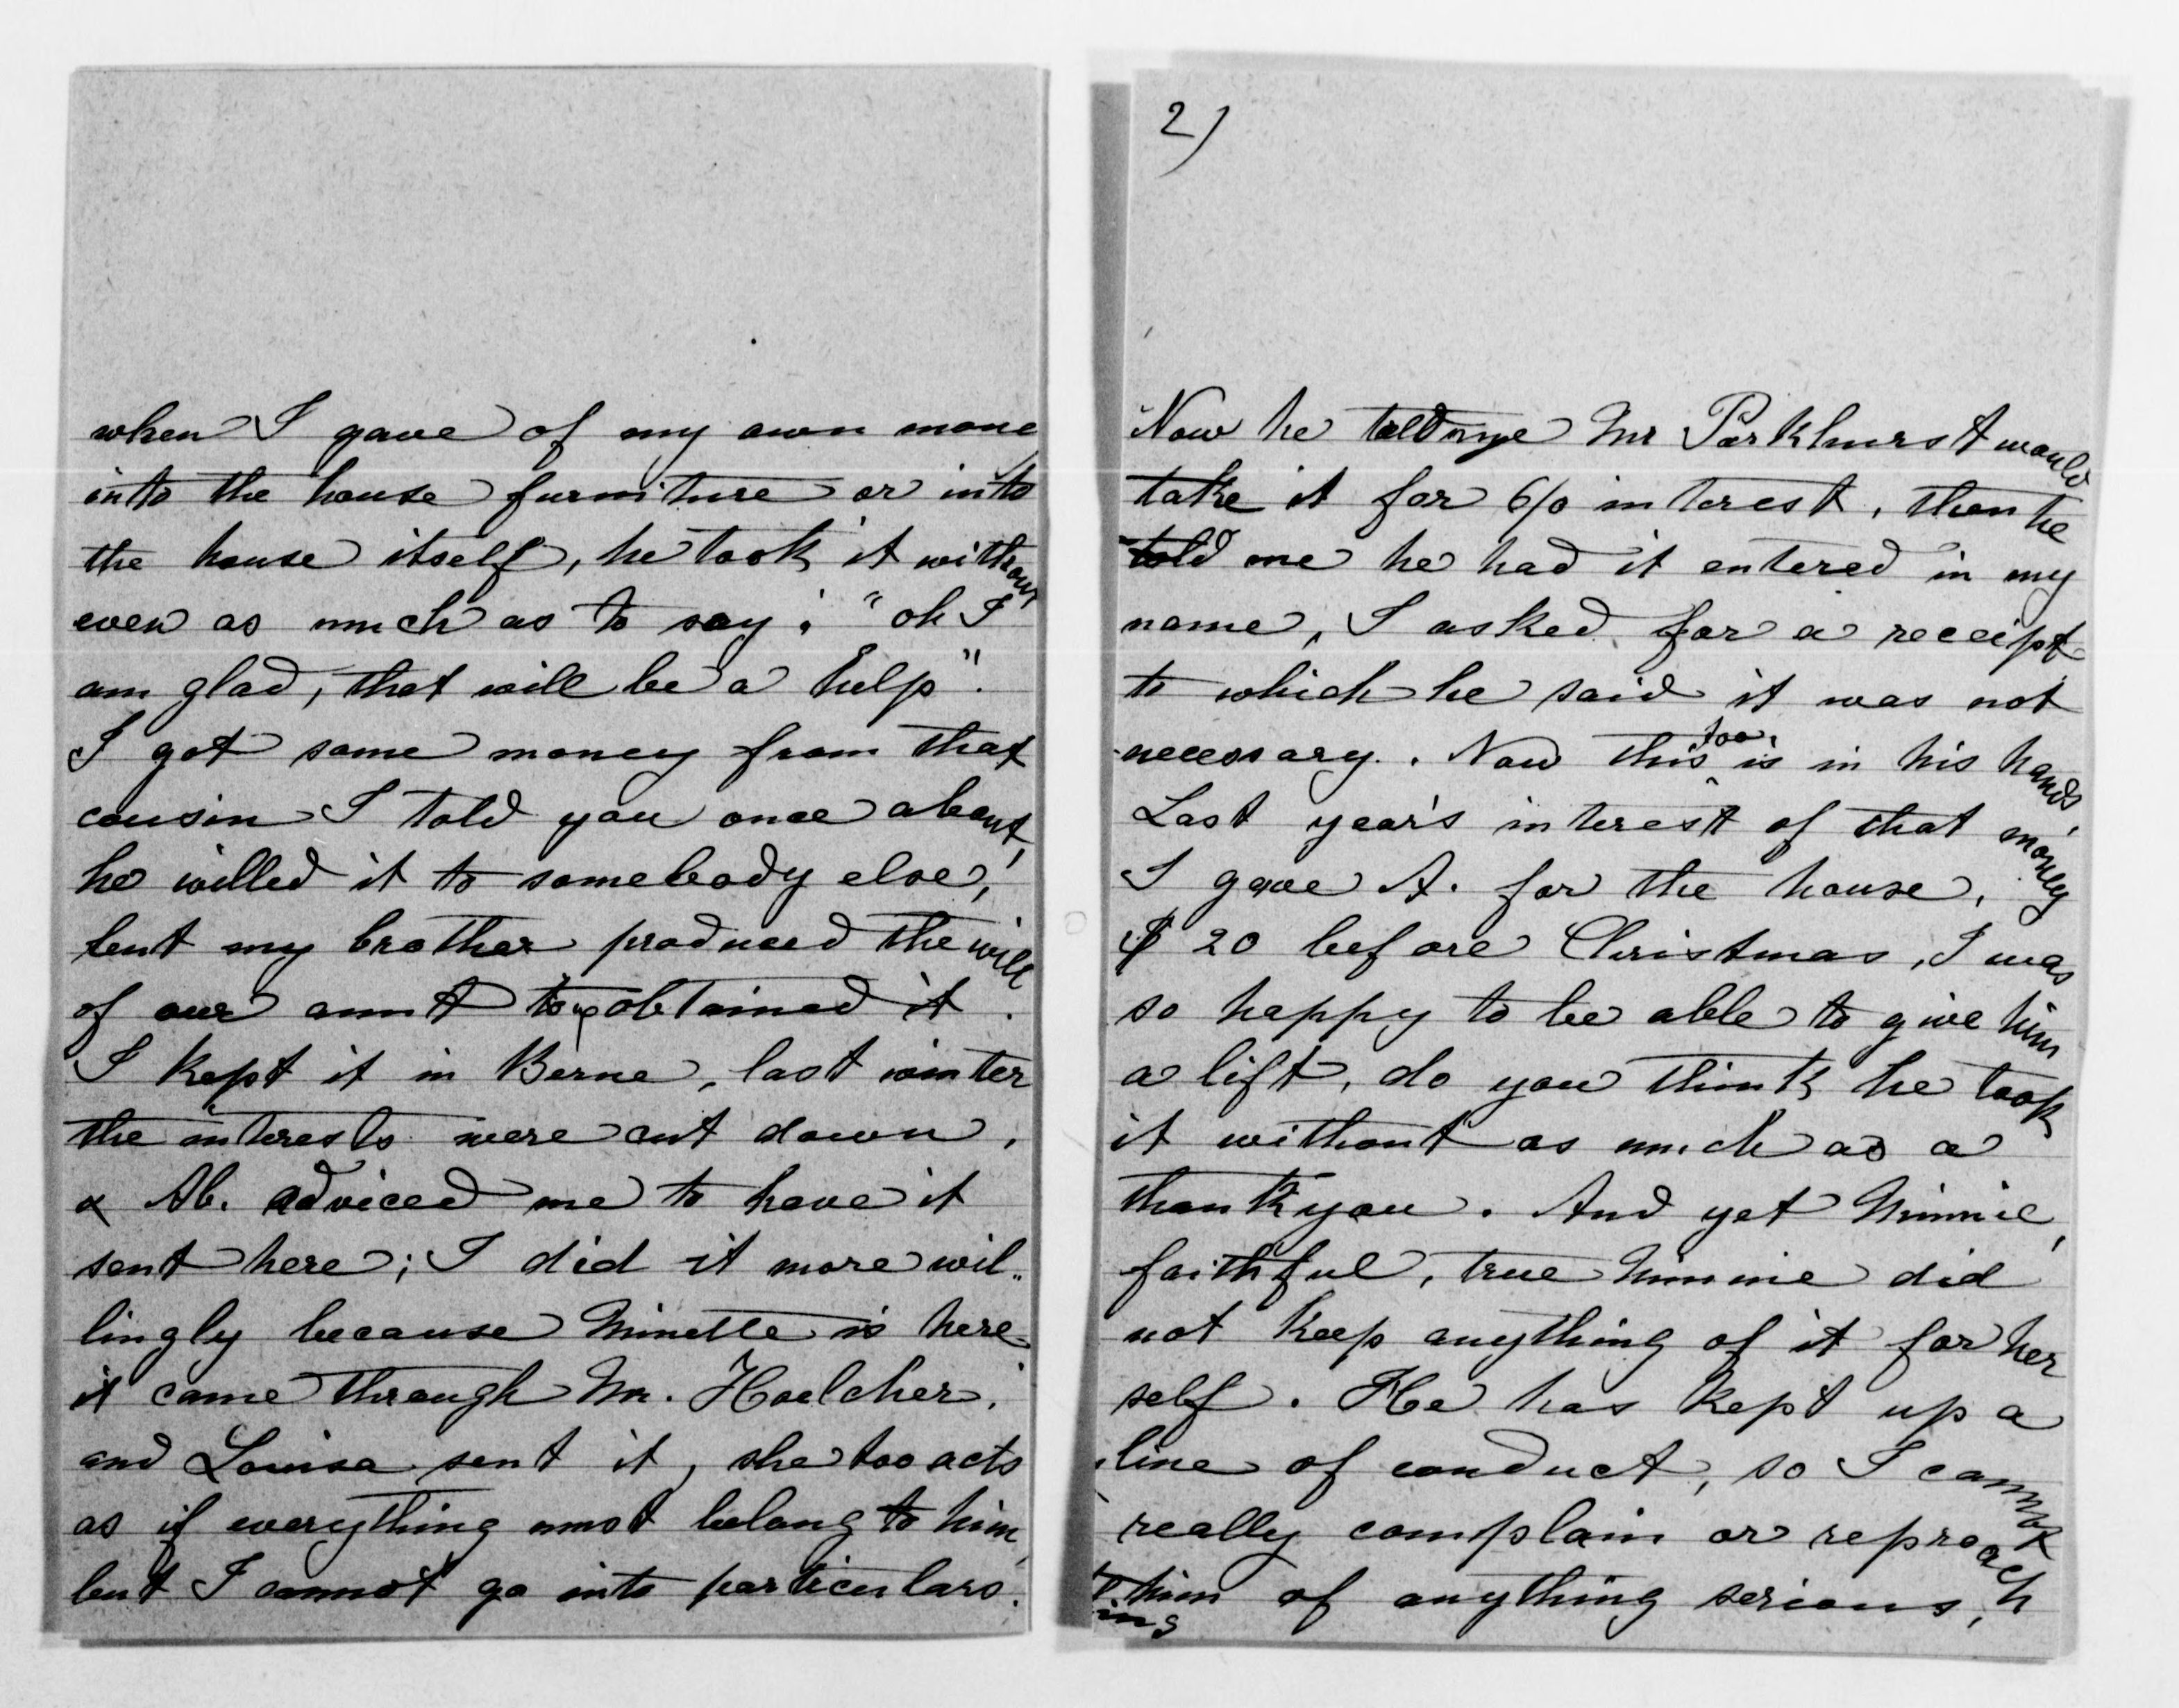 when I gave of my own money
into the house furniture or into
the house itself, he took it without
even as much as to say: "oh I
am glad, that will be a help".
I got some money from that
cousin I told you once about,
he willed it to somebody else,
but my brother produced the will
of our aunt & obtained it.
I kept it in Berne, last winter
the interests were cut down,
& Ab. adviced me to have it
sent here; I did it more wil„
lingly because Minette is here
it came through Mr. Hoelcher,
and Louisa sent it, she too acts
as if everything must belong to him,
but I cannot go into particulars.
2)
Now he told me Mr Parkhurst would
take it for 6% interest, then he
told me he had it entered in my
name, I asked for a receipt
to which he said it was not
necessary. Now this too, is in his hands,
Last year's interest of that money
I gave A. for the house,
$ 20 before Christmas, I was
so happy to be able to give him
a lift, do you think he took
it without as much as a
thank you. And yet Minnie,
faithful, true Minnie did
not keep anything of it for her
self. He has kept up a
line of conduct, so I cannot
really complain or reproach
him of anything serious,